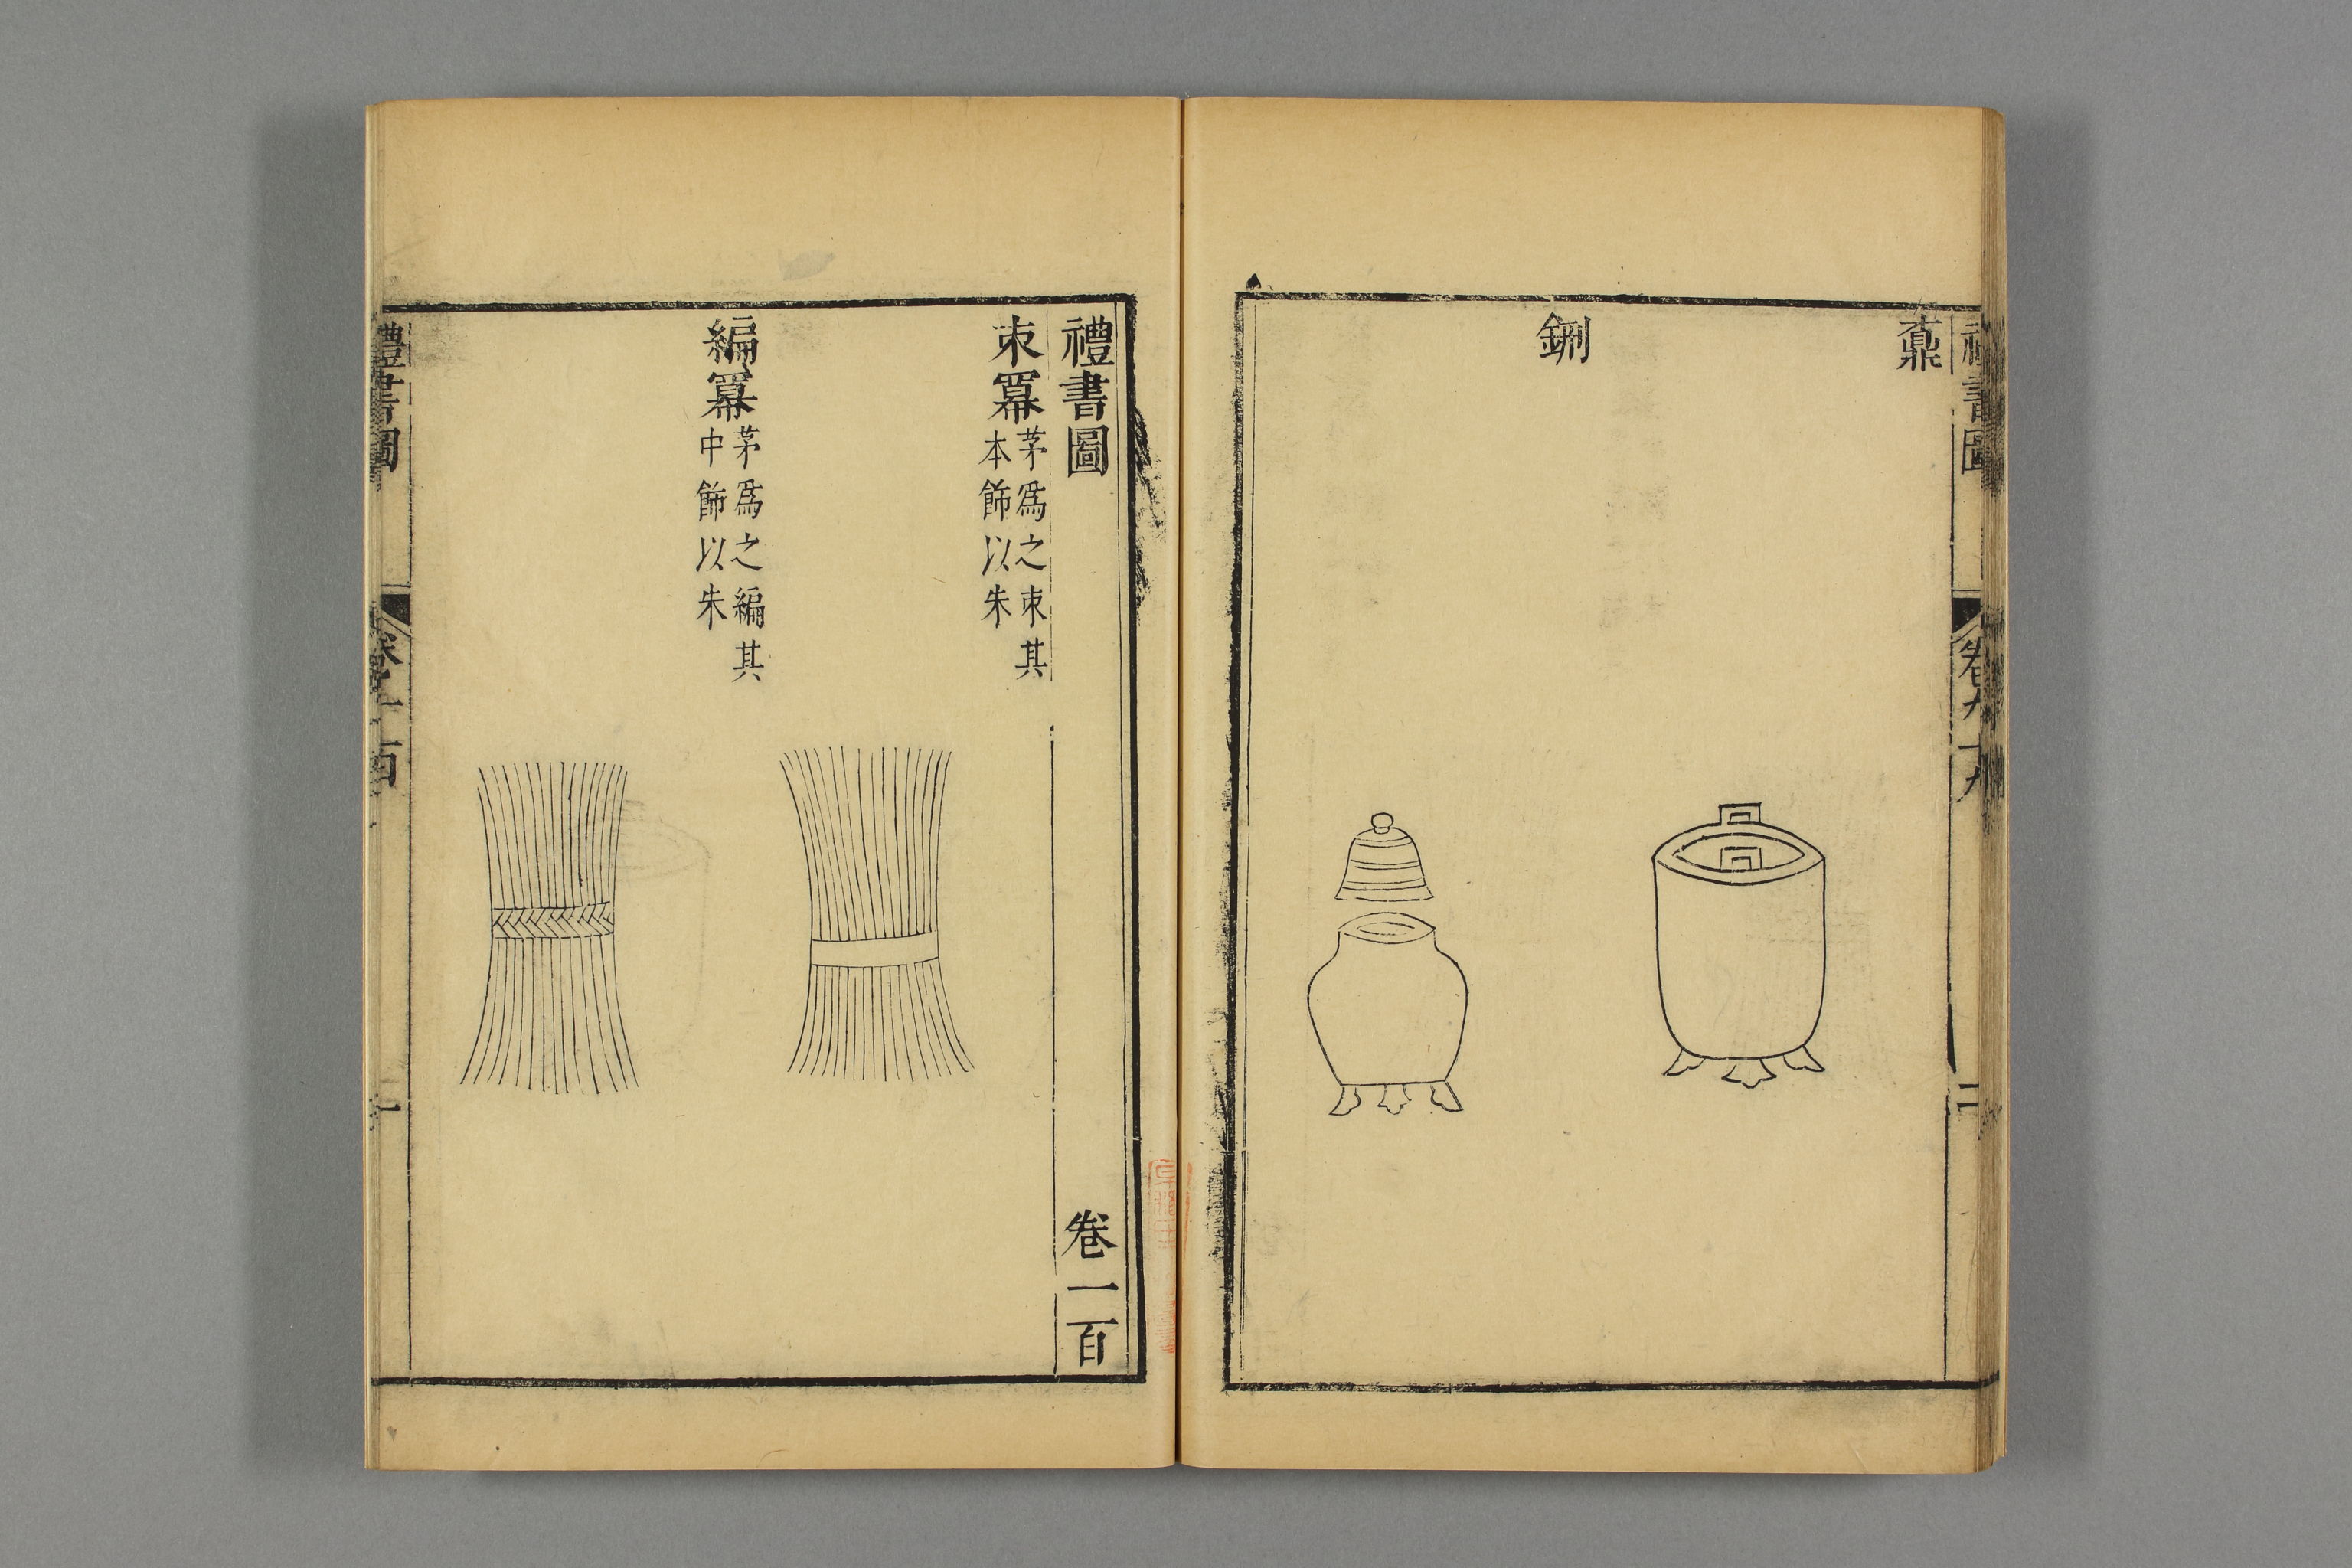 禮書圖 卷九十九 二
鼒
鉶
禮書圖 卷一百
束羃
茅爲之束其
本飾以朱
編羃
茅爲之編其
中飾以朱
禮書圖 卷一百 一